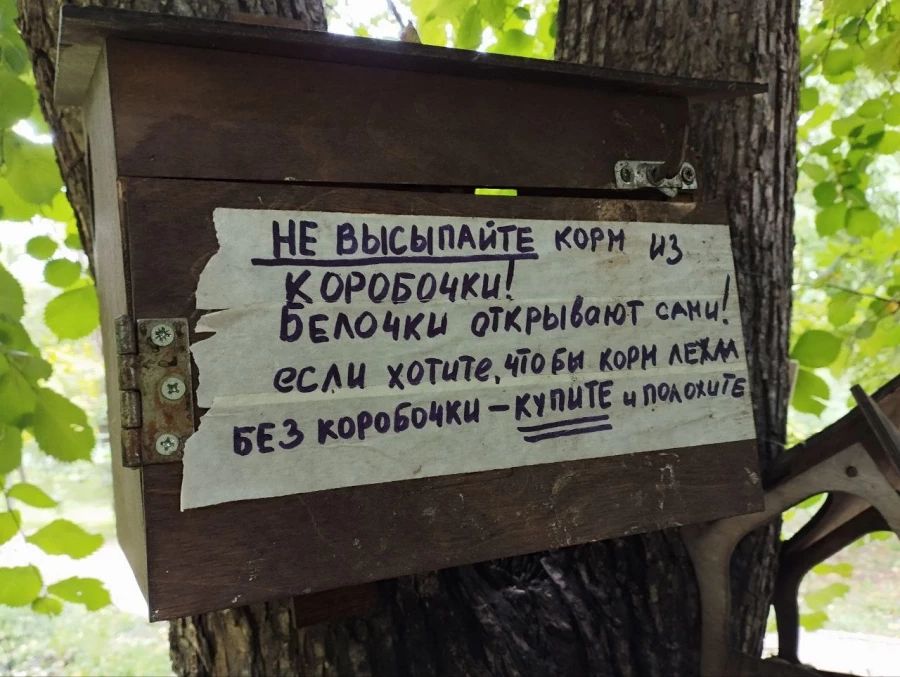 НЕ ВЫСЫПАЙТЕ КОРМ ИЗ
КОРОБОЧКИ!
БЕЛОЧКИ ОТКРЫВАЮТ САМИ!
ЕСЛИ ХОТИТЕ, ЧТОБЫ КОРМ ЛЕЖАЛ
БЕЗ КОРОБОЧКИ – КУПИТЕ И ПОЛОЖИТЕ